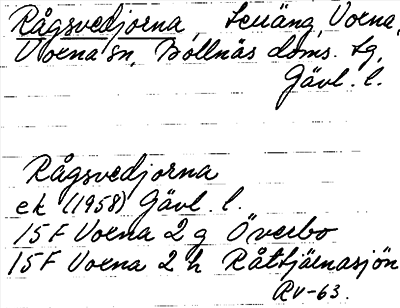 Rågsvedjorna, Teuäng, Voxna,
Voxna sn, Bollnäs doms. tg,
Gävl. l.
Rågsvedjorna
ek (1958) Gävl. l.
15F Voxna 2 g Överbo
15F Voxna 2 h Råttjärnasjön
RV-63.